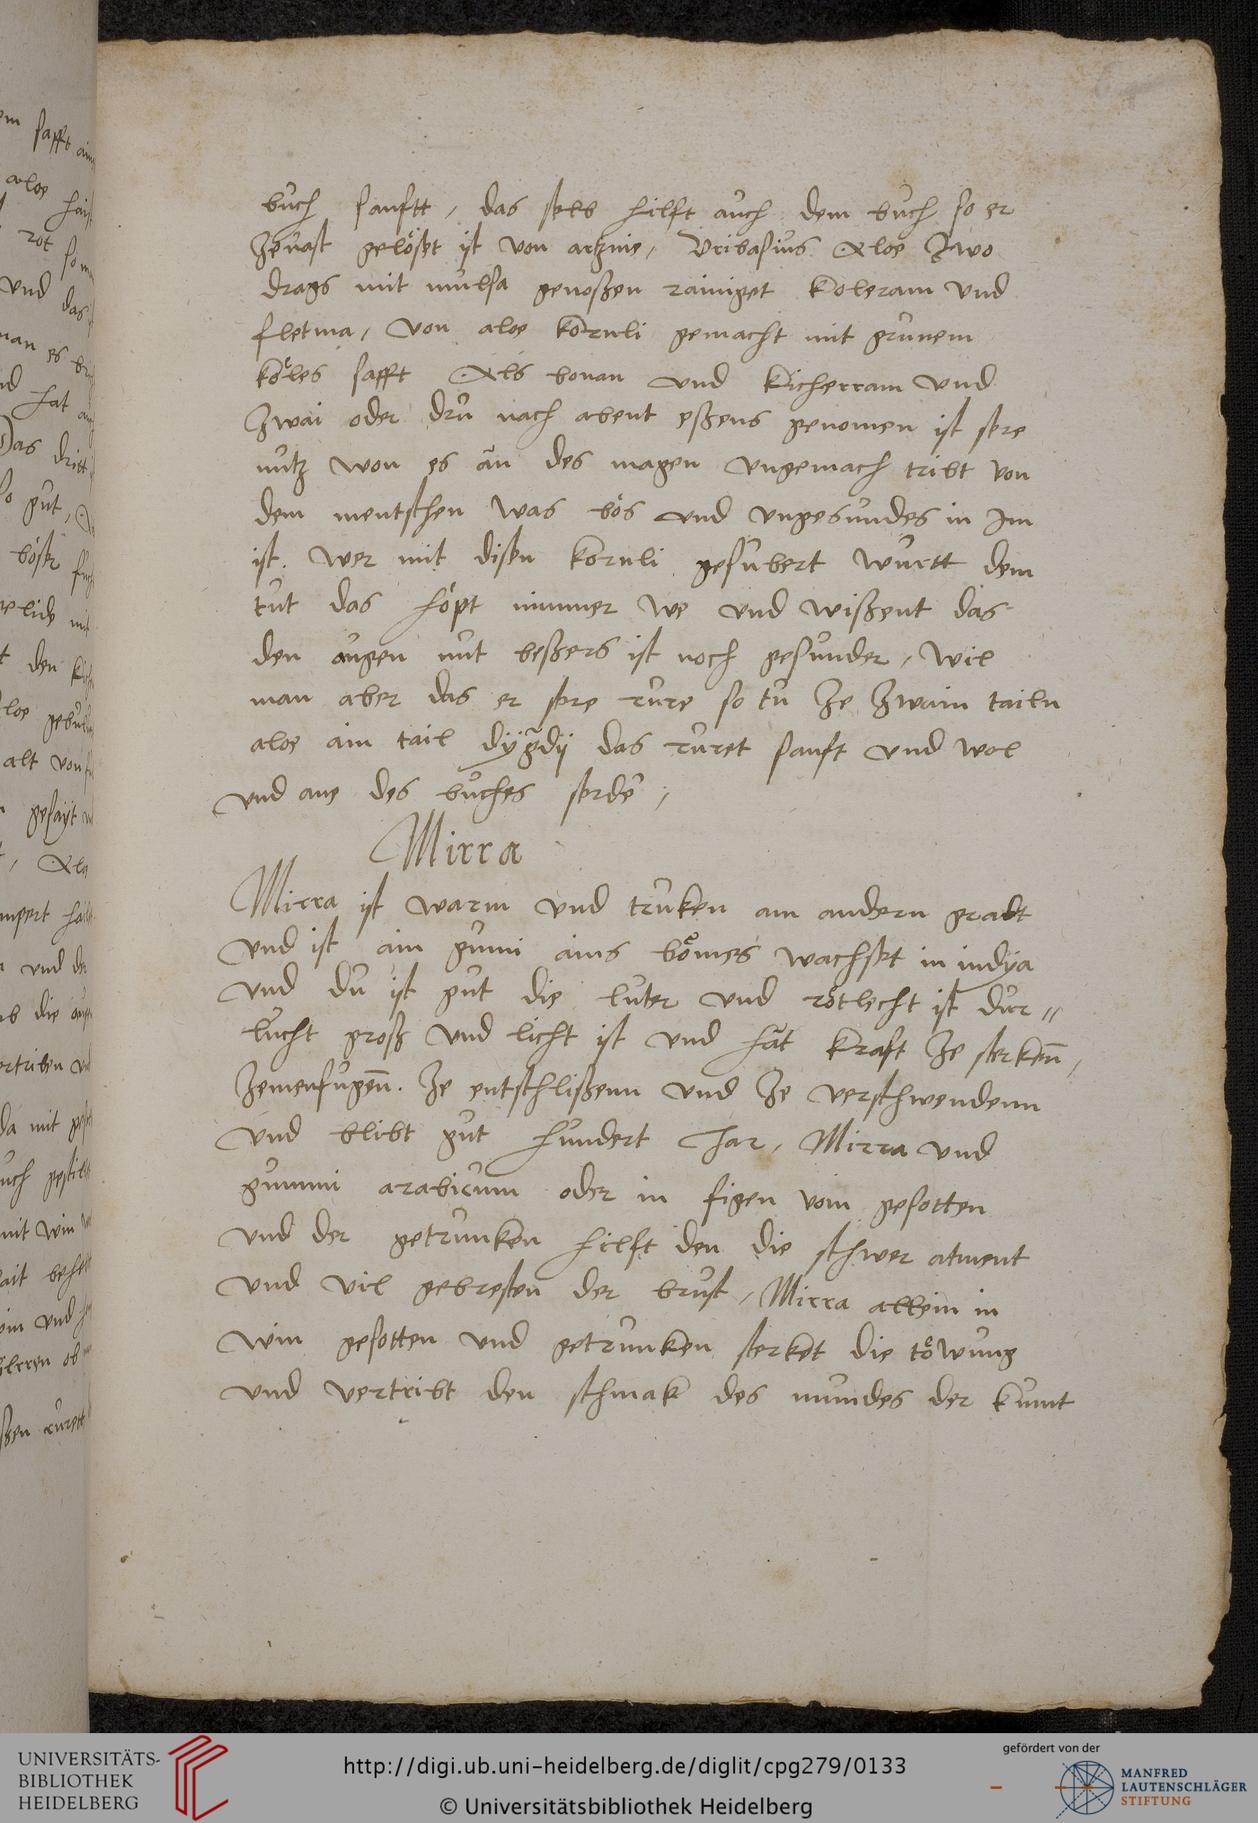 buch sanftt / das selb hilft auch dem buch so er
ze vast gelöset ist von artznie / Vribasius Aloe Zwo
drags mit mulsa genossen rainiget koleram vnd
fletma / von aloe kornli gemacht mit grunem
köles safft Als bonan vnd kicherram vnd
zwai oder dru nach abent essens genomen ist sere
nutz won es än des magen vngemach tribt von
dem mentschen was bös vnd vngesundes in Im
ist. wer mit disen kornli gesubert wurtt dem
tut das höpt nimmer we vnd wissent das
den augen nut bessers ist noch gesunder / wil
man aber das er sere rure so tu ze zwain tailn
aloe ain tail dÿgdÿ das ruret sanft vnd wol
vnd ane des buches serde /
Mirra
Mirra ist warm vnd truken am andern gradt
vnd ist ain gumi ains bömes wachset in indya
vnd du ist gut die luter vnd rötlecht ist dur〃
lucht gross vnd licht ist vnd hät kraft ze sterken̄ /
zemenfugen̄. ze entschlissenn vnd ze verschwendenn
vnd blibt gut hundert Jar / Mirra vnd
gummi arabicum oder in figen vom gesotten
vnd der getrunken hilft den die schwer atment
vnd vil gebresten der brust / Mirra allein in
win gesotten vnd getrunken sterket die töwung
vnd vertribt den schmak des mundes der kumt
UNIVERSITÄTS-
BIBLIOTHEK
HEIDELBERG
http://digi.ub.uni-heidelberg.de/diglit/cpg279/0133
© Universitätsbibliothek Heidelberg
gefördert von der
MANFRED
LAUTENSCHLÄGER
STIFTUNG